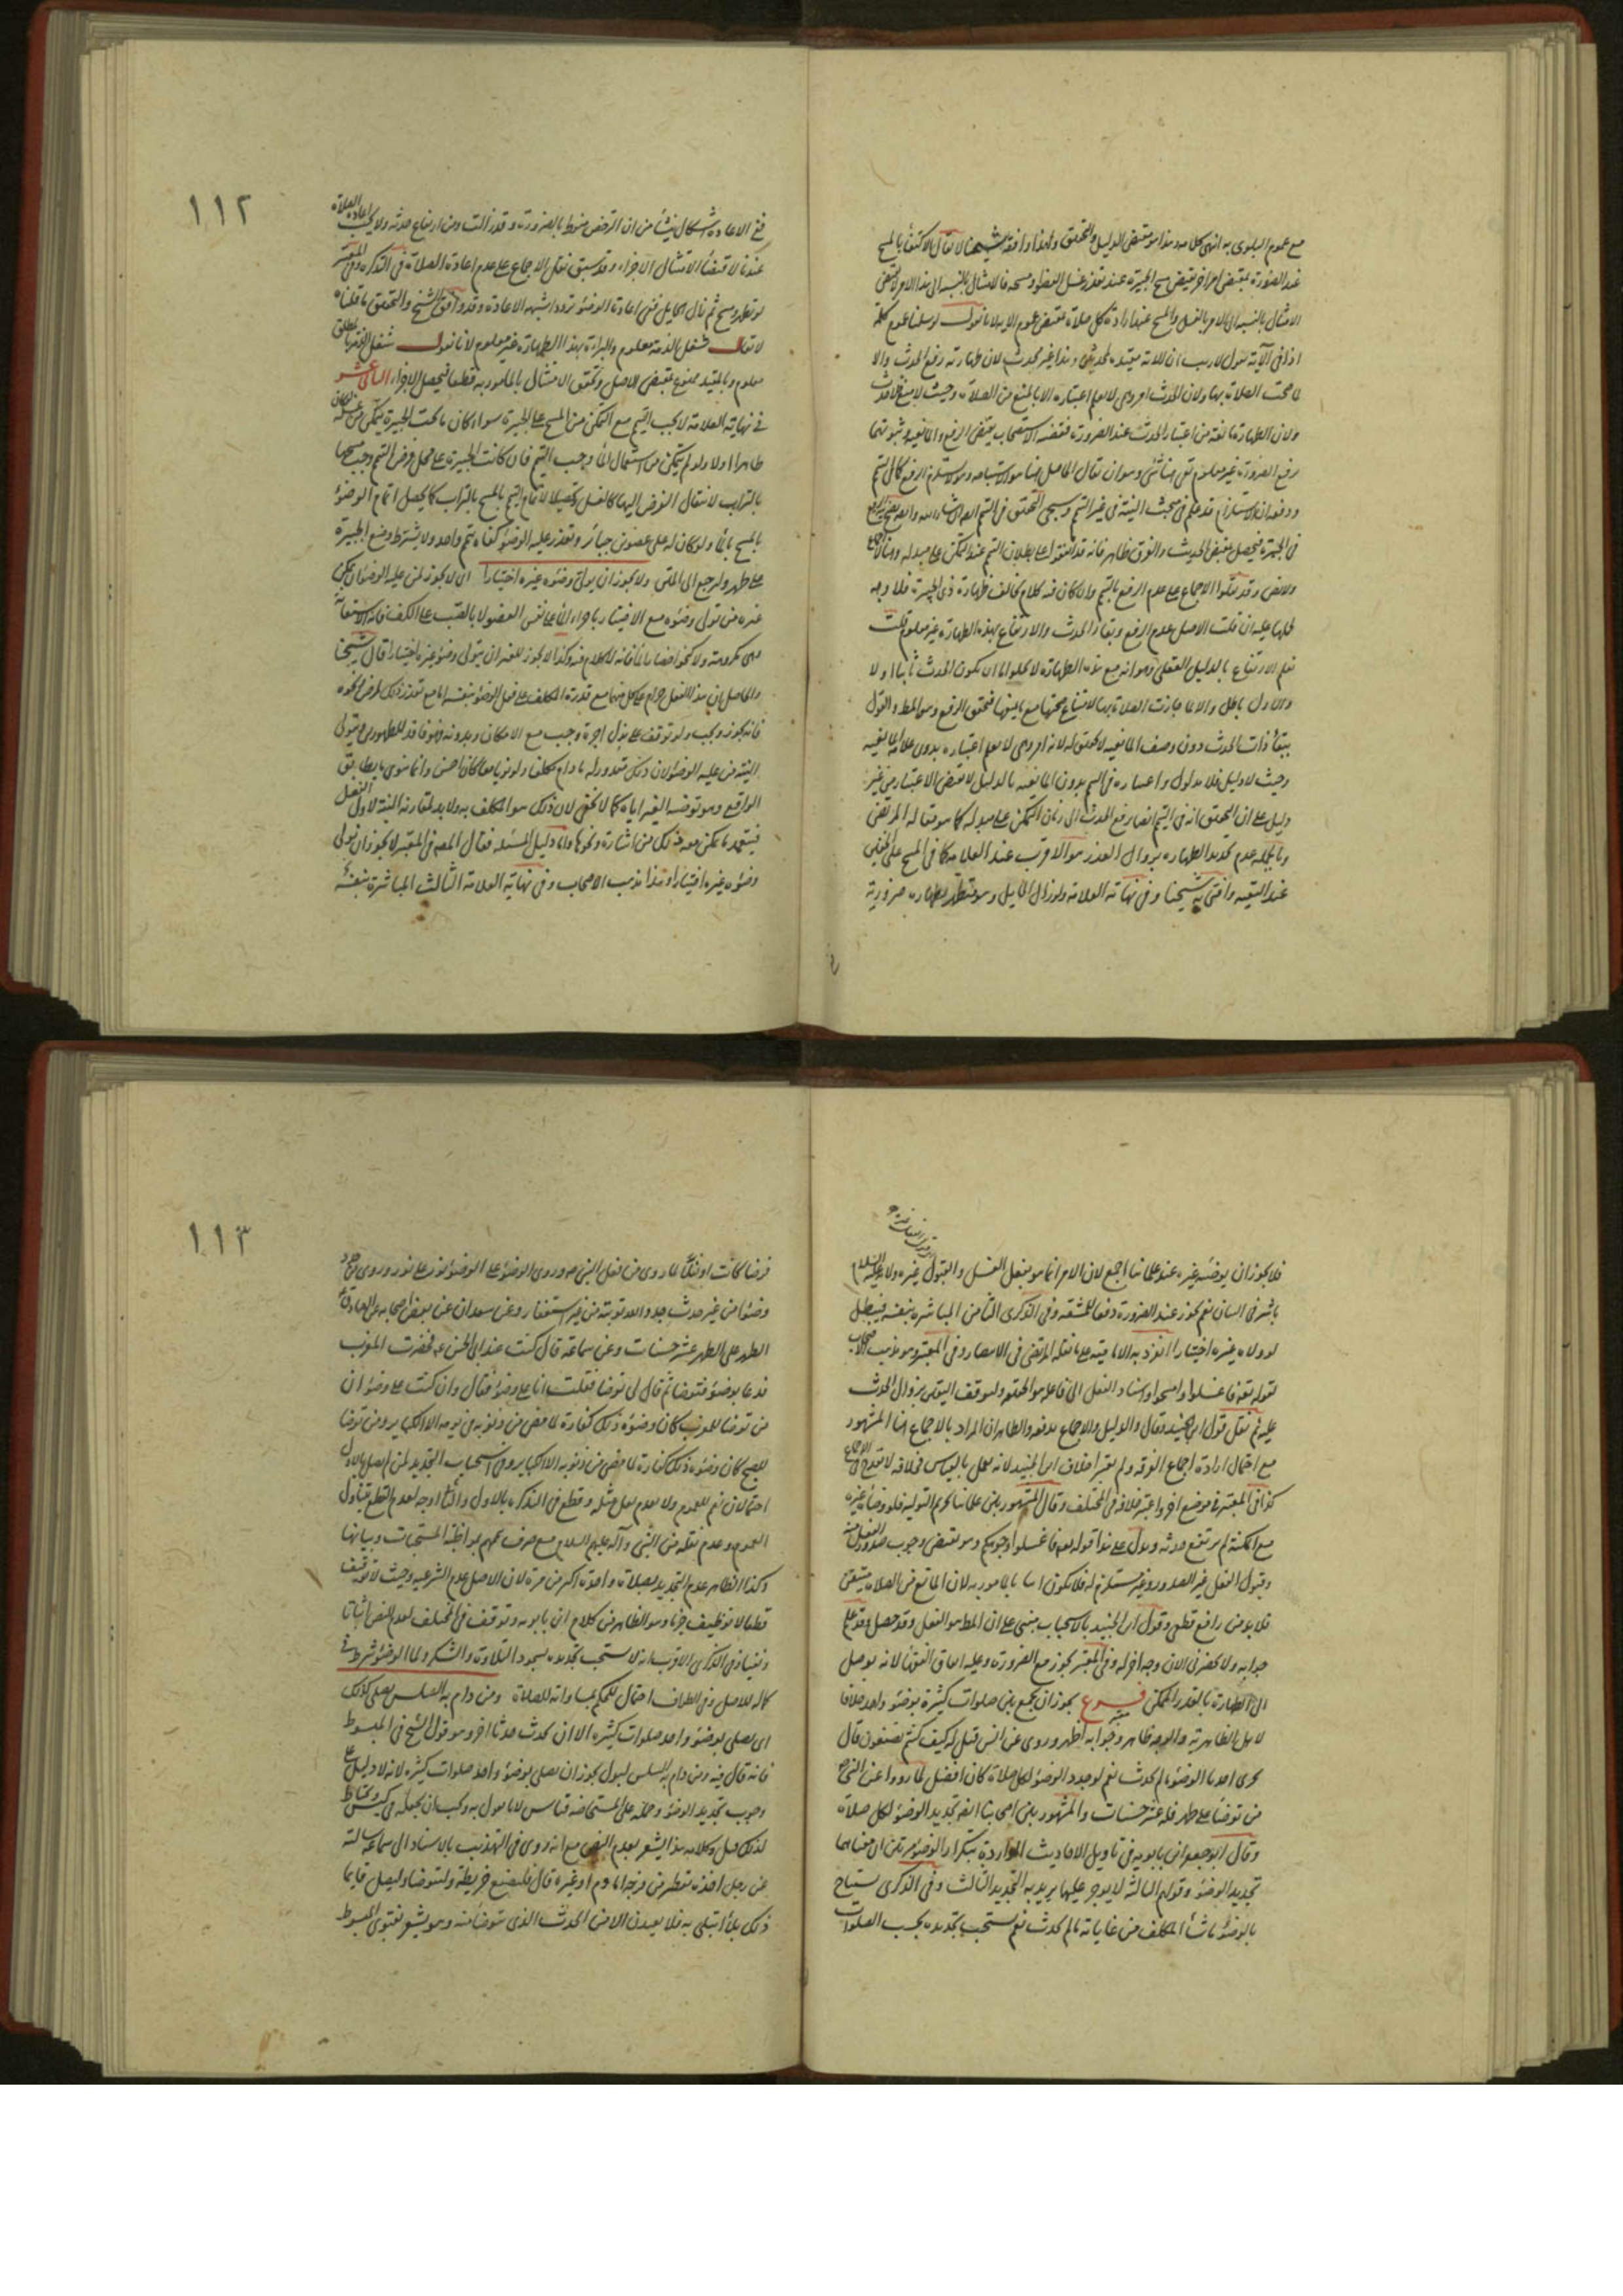 مع عموم البلوى به انتهى كلامه وهذا هو مقتضى الدليل والتحقيق ولهذا وافقه شيخنا لا يقال الاكتفاء بالمسح
عند الضرورة بمقتضى امر اخر يقتضي مسح الجبيرة عند تعذر غسل العضو ومسحه فالامتثال بالنسبة الى هذا الامر لا يقتضي
الامتثال بالنسبة الى الامر بالغسل والمسح عند ارادة كل صلاة بمقتضى عموم الاية لانا نقول لو سلمنا عموم كلمة
اذا في الآية نقول لا ريب ان الاية مقيدة بالمحدثين وهذا غير محدث لان طهارته رفع الحدث والا
لما صحت الصلاة بها ولان الحدث امر وهمي لا يعلم اعتباره الا بالمنع من الصلاة وحيث لا منع فلا حدث
ولان الطهارة مانعة من اعتبار الحدث عند الضرورة فقضية الاستصحاب يقتضي الرفع والمانعية وثبوتهما
رفع الضرورة غير معلوم بقي هنا شيء وهو ان يقال الحاصل هنا هو الاستباحة وهو لا يستلزم الرفع كما في التيمم
ودفعه ان الاستلزام قد علم في مبحث النية في غير التيمم وسيجيء التحقيق في التيمم انشاء الله
في الجبيرة فيحصل بمقتضى الحديث والفرق ظاهر فانه قد اتفقوا على بطلان التيمم عند التمكن على مبدله
وقد نقلوا الاجماع على عدم الرفع بالتيمم وان كان فيه كلام بخلاف طهارة ذي الجبيرة فلا وجه
لحملها عليه ان قلت الاصل عدم الرفع وبقاء الحدث والارتفاع بهذه الطهارة غير معلوم قلت
نعلم الارتفاع بالدليل العقلي وهو انه مع هذه الطهارة لا يخلو اما ان يكون الحدث ثابتا او لا
والاول باطل والا لما جازت الصلاة بها لامتناع صحتها مع ما ينافيها فتحقق الرفع وهو المط والقول
ببقاء ذات الحدث دون وصف المانعية لا تحقق له لانه امر وهمي لا يعلم اعتباره بدون علامة المانعية
وحيث لا دليل فلا مدلول واعتباره في التيمم بدون المانعية بالدليل لا يقتضي الاعتبار من غير
دليل على ان التحقيق انه في التيمم ايضا رفع الحدث الى زمان التمكن على مبدله كما هو مقالة المرتضى
وبالجملة عدم تجديد الطهارة بزوال العذر هو الاقرب عند العلامة كما في المسح على الخفين
عند التقية وافتى به شيخنا وفي نهاية العلامة ولو زال الحايل وهو متطهر بطهارة ضرورية
١١٢
ففي الاعادة اشكال ينشأ من ان الترخص منوط بالضرورة وقد زالت ومن ارتفاع حدثه ولا يجب اعادة الصلاة
عندنا لاقتضاء الامتثال الاجزاء وقد سبق نقل الاجماع على عدم اعادة الصلاة في التذكرة وفي المعتبر
لو تطهر ومسح ثم زال الحايل ففي اعادة الوضوء تردد اشبهه الاعادة وقد وافق الشيخ والتحقيق ما قلناه
لا يقال شغل الذمة معلوم والبراءة بهذا الطهارة غير معلوم لانا نقول شغل الذمة بالمطلق
معلوم وبالمقيد ممنوع بمقتضى الاصل وتحقق الامتثال بالمأمور به قطعا فيحصل الاجزاء الثاني عشر
في نهاية العلامة لا يجب التيمم مع التمكن من المسح على الجبيرة سواء كان ما تحت الجبيرة يتمكن من غسله لو كان
طاهرا او لا ولو لم يتمكن من استعمال الماء وجب التيمم فان كانت الجبيرة على محل فرض التيمم وجب مسحها
بالتراب لانتقال الفرض اليها كالغسل وتحصيلا لاتمام التيمم بالمسح بالتراب كما يحصل اتمام الوضوء
بالمسح بالماء ولو كان له على عضوين جبائر وتعذر عليه الوضوء كفاه تيمم واحد ولا يشترط وضع الجبيرة
على طهر ولنرجع الى المتن ولا يجوز ان يولي وضوئه غيره اختيارا اي لا يجوز لمن عليه الوضوء ان يمكن
غيره من تولي وضوئه مع الاختيار باجراء الماء على نفس العضو لا بالصب على الكف فانه استعانة
وهي مكروهة ولا نحو احضار الماء فانه لا كلام فيه وكذا لا يجوز للغير ان يتولى وضوء غيره اختيارا قال شيخنا
والحاصل ان هذا الفعل حرام على كل منهما مع قدرة المكلف على فعل الوضوء بنفسه اما مع تعذر ذلك لمرض ونحوه
فانه يجوز ويجب ولو توقف على بذل اجرة وجب مع الامكان وبدونه فهو فاقد للطهور ويتولى
النية من عليه الوضوء لان ذلك مقدور له ما دام مكلفا ولو نويا معا كان احسن وانما ينوي ما يطابق
الواقع وهو توضية الغير اياه كما لا يخفى لان ذلك هو المكلف به ولا بد لمقارنة النية لاول الفعل
فيتعمد ما يمكن معه ذلك من اشارة ونحوها واما دليل المسئلة فقال المصه في المعتبر لا يجوز ان يولي
وضوءه غيره اختيارا وهذا مذهب الاصحاب وفي نهاية العلامة الثالث المباشرة بنفسه
فلا يجوز ان يوضيه غيره عند علمائنا اجمع لان الامر انما هو بفعل الغسل والقبول غيره
باشر في السان نعم يجوز عند الضرورة دفعا للمشقة وفي الذكرى الثامن المباشرة بنفسه فيبطل
لو ولاه غيره اختيارا انفرد به الامامية على ما نقله المرتضى في الانتصار وفي المعتبر هو مذهب الاصحاب
لقوله تعه فاغسلوا وامسحوا واسناد الفعل الى فاعله هو الحقيقة ولتوقف اليقين بزوال الحدث
عليه ثم نقل قول ابن الجنيد وقال والدليل والاجماع يدفعه والظاهر ان المراد بالاجماع هنا المشهور
مع احتمال ارادة اجماع الفرقة ولم يعتبر خلاف ابن الجنيد لانه يعمل بالقياس فخلافه لا يقدح في الاجماع
كذا في المعتبر في موضع اخر واعتبر خلافه في المختلف وقال المشهور بين علمائنا تحريم التولية فلو وضاه غيره
مع المكنة لم يرتفع حدثه ويدل على هذا قوله تعه فاغسلوا وجوهكم وهو يقتضي وجوب صدور الفعل منه
وقبول الفعل غير الصدور وغير مستلزم له فلا يكون اتيا بالمأمور به لان المانع من الصلاة متيقن
فلا بد من رافع قطعي وقول ابن الجنيد بالاستحباب مبني على ان المط هو الفعل وقد حصل وقد علم
جوابه ولا يحضرني الان وجه اخر له وفي المعتبر يجوز مع الضرورة وعليه اتفاق الفقهاء لانه توصل
الى الطهارة بالقدر الممكن فروع يجوز ان يجمع بين صلوات كثيرة بوضوء واحد خلافا
لاهل الظاهرية والوجه ظاهر وجوابه اظهر وروى عن انس قيل له كيف كنتم تصنعون قال
يجزي احدنا الوضوء ما لم يحدث نعم لو جدد الوضوء لكل صلاة كان افضل لما رووا عن النبي ص
من توضأ على طهر فله عشر حسنات والمشهور بين اصحابنا انهم تجديد الوضوء لكل صلاة
وقال ابو جعفر ابن بابويه في تأويل الاحاديث الواردة بتكرار الوضوء مرتين ان معناها
تجديد الوضوء وقولهم الثالثة لا يوجر عليها يريد به التجديد الثالث وفي الذكرى يستباح
بالوضوء ما شاء المكلف من غاياته ما لم يحدث نعم يستحب تجديده بحسب الصلوات
١١٣
فرضا كانت او نفلا لما روى من فعل النبي ص وروى الوضوء على الوضوء نور على نور وروى من جدد
وضوءا من غير حدث جدد الله توبته من غير استغفار وعن سعدان عن بعض اصحابه عن الصادق ع
الطهر على الطهر عشر حسنات وعن سماعة قال كنت عند ابي الحسن ع فحضرت المغرب
فدعا بوضوء فتوضأ ثم قال لي توضأ فقلت انا على وضوء فقال وان كنت على وضوء ان
من توضأ للمغرب كان وضوءه ذلك كفارة لما مضى من ذنوبه في يومه الا الكباير ومن توضأ
للصبح كان وضوءه ذلك كفارة لما مضى من ذنوبه الا الكباير وفي استحباب التجديد لمن لم يصل بالاول
احتمالان نعم للعموم ولا لعدم نقل مثله وقطع في التذكرة بالاول والثاني اوجه لعدم القطع بتناول
العموم وعدم نقله من النبي وآله عليهم السلام مع صرف هممهم بمواظبة المستحبات وبيانها
وكذا الظاهر عدم التجديد لصلاة واحدة اكثر من مرة لان الاصل عدم الشرعية وحيث لا توقيف
قطعا لا توظيف جزما وهو الظاهر من كلام ابن بابويه وتوقف في المختلف لعدم النص اثباتا
ونفيا وفي الذكرى الاقرب انه لا يستحب تجديده لسجود التلاوة والشكر ولما الوضوء شرط في
كماله للاصل وفي الطواف احتمال للحكم بمساواته للصلاة ومن دام به السلس يصلي كذلك
اي يصلي بوضوء واحد صلوات كثيرة الا ان يحدث حدثا اخر وهو قول الشيخ في المبسوط
فانه قال فيه ومن دام به السلس لبول يجوز ان يصلي بوضوء واحد صلوات كثيرة لانه لا دليل على
وجوب تجديد الوضوء وحمله على المستحاضة قياس لا نقول به ويجب ان يجعله في كيس ويحتاط
لذلك قيل وكلامه هذا يشعر بعدم النص مع انه روى في التهذيب بالاسناد الى سماعة سالته
عن رجل اخذه تقطير من فرجه اما دم او غيره قال فليصنع خريطة وليتوضأ وليصل فانما
ذلك بلاء ابتلي به فلا يعيدن الا من الحدث الذي يتوضأ منه وهو يشعر بفتوى المبسوط